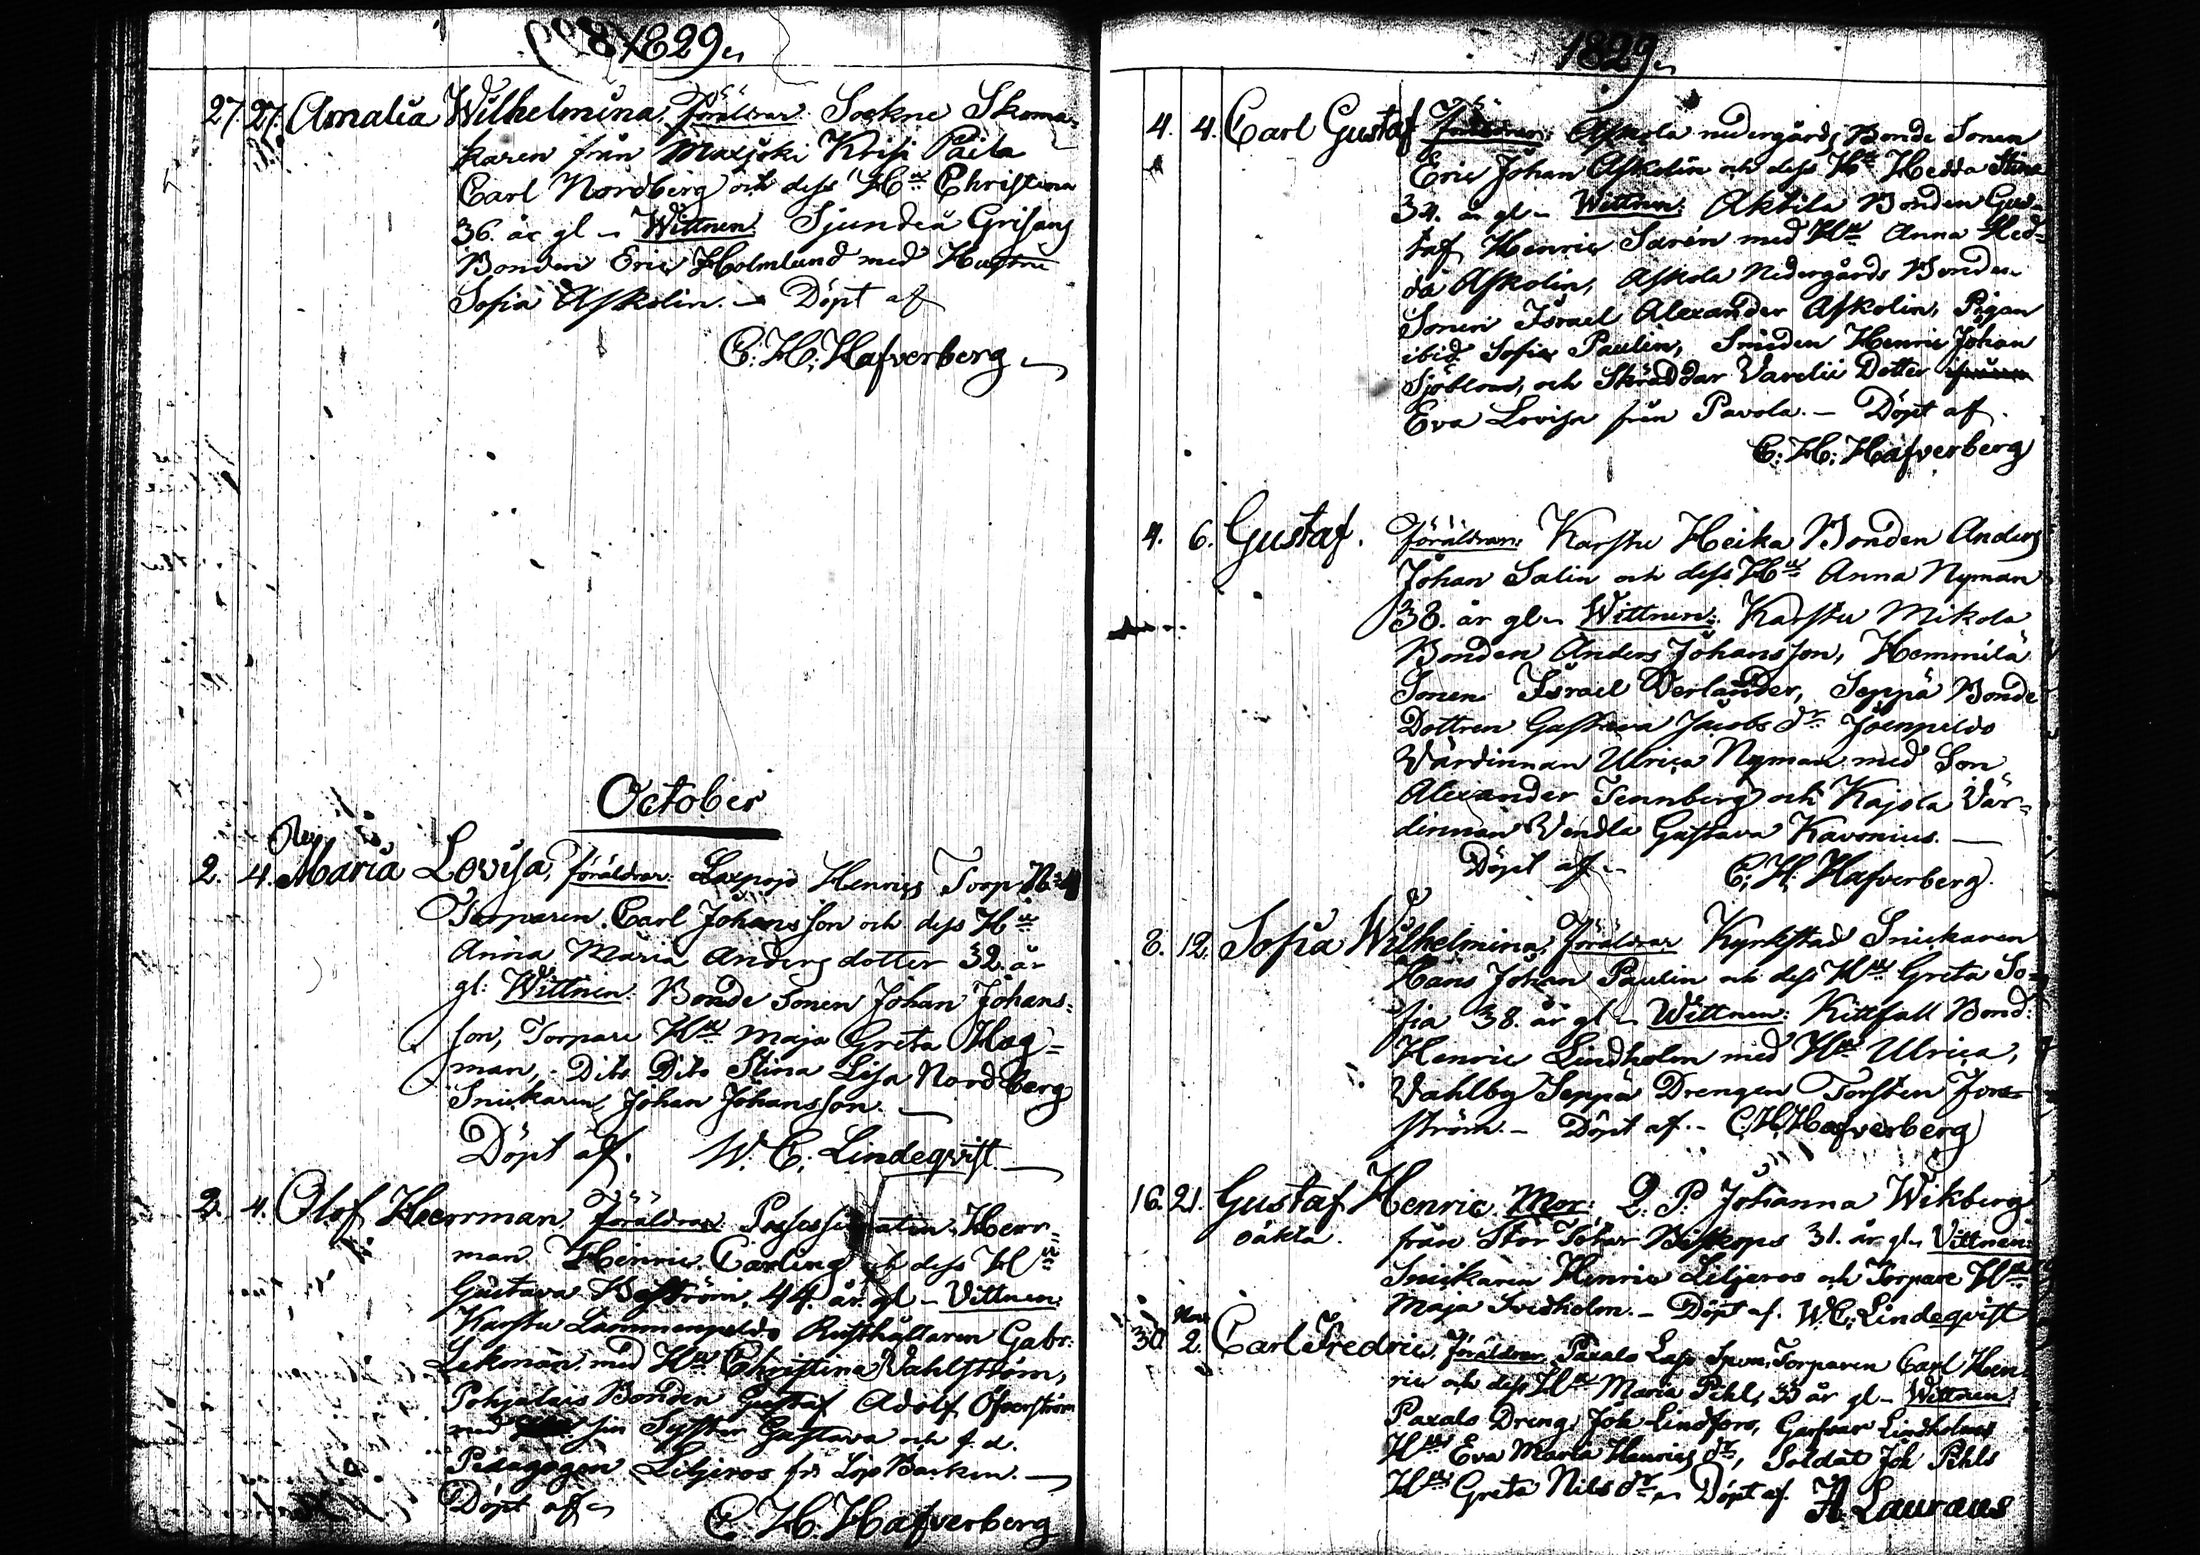 1829
27. 27. Amalia Wilhelmina, föräldrar: Sockne Skoma-
karen från Maxjoki Krisi Paila
Carl Nordberg och dess Hu Christina
36. år gl – Wittnen: Sjundeå Grisans
Bonden Eric Holmlund med Hustru
Sofia Askolin. – Döpt af
C. H. Hafverberg
October
2. 4. Maria Lovisa, föräldrar: Laxpojo Henrics Torp
Torparen Carl Johansson och dess Hu
Anna Maria Anders dotter 32. år
gl: Wittnen: Bonde Sonen Johan Johans-
son, Torpare Hu Maja Greta Hag-
man, Dito Dito Stina Lisa Nordberg
Snickaren Johan Johansson.
Döpt af. W. C. Lindeqvist
4. Olof Herrman föräldrar Herr-
man Henric Carling och dess Hu
Gustava 44. år gl – Vittnen:
Karstu Lammenpeldo Rusthållaren Gabr:
Lekman med Hu Christina Vahlström,
Pohjalais Bonden Gustaf Adolf Öfverström
med sin Syster Gustava och f.d.
Pedagogen Liljeros
Döpt af
C. H. Hafverberg
1829
4. 4. Carl Gustaf Föräldrar: Askola nedergårds Bonde Sonen
Eric Johan Askolin och dess Hu Hedda Stina
34. år gl – Wittnen: Aktila Bonden Gus-
taf Henric Saren med Hu Anna Hed-
da Askolin, Askola Nedergårds Bonde
Sonen Israel Alexander Askolin, Pigan
ibid Sofia Paulin, Smeden Henric Johan
Sjöblom, och Skräddar Varelii Dotter
Eva Lovisa från Pavola. – Döpt af
C. H. Hafverberg
4. 6. Gustaf. föräldrar: Karstu Heika Bonden Anders
Johan Salin och dess Hu Anna Nyman
38. år gl – Wittnen: Karstu Mikola
Bonden Anders Johansson, Hemmilä
Sonen Israel Verlander, Seppä Bonde
Dottren Gustava Jacobs dr Joenpeldo
Värdinnan Ulrica Nyman med Son
Alexander Tennberg och Kajola Vär-
dinnan Vendla Gustava Kavonius. –
Döpt af – C. H. Hafverberg.
8. 12. Sofia Wilhelmina, föräldrar Kyrkstad Snickaren
Hans Johan Paulin och dess Hu Greta So-
fia 38. år gl – Wittnen: Kittfall Bond:
Henric Lindholm med Hu Ulrica,
Vahlby Seppä Drengen Torsten Fors-
ström. – Döpt af. – C. H. Hafverberg
16. 21. Gustaf Henric. Mor: Q. P. Johanna Wikberg
oäkta. från Stor Tötar Biskops 31. år gl – Vittnen:
Snickaren Henric Liljeros och Torpare Hu
Maja Svedholm. – Döpt af. W. C. Lindeqvist
Nov
30 2. Carl Fredric, föräldrar Paxalo Torparen Carl Hen-
ric och dess Hu Maria Pihl, 33 år gl – Wittnen:
Paxalo Dreng Joh Lindfors, Garfvar Lindholms
Hu Eva Maria Henrics dr, Soldat Joh Pihls
Hu Greta Nils dr – Döpt af. A Lauraeus